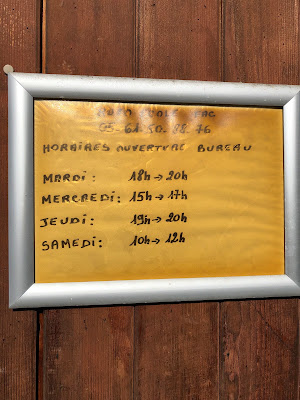 05.61.50.88.76
HORAIRES OUVERTURE BUREAU
MARDI : 18h → 20h
MERCREDI : 15h → 17h
JEUDI : 19h → 20h
SAMEDI : 10h → 12h